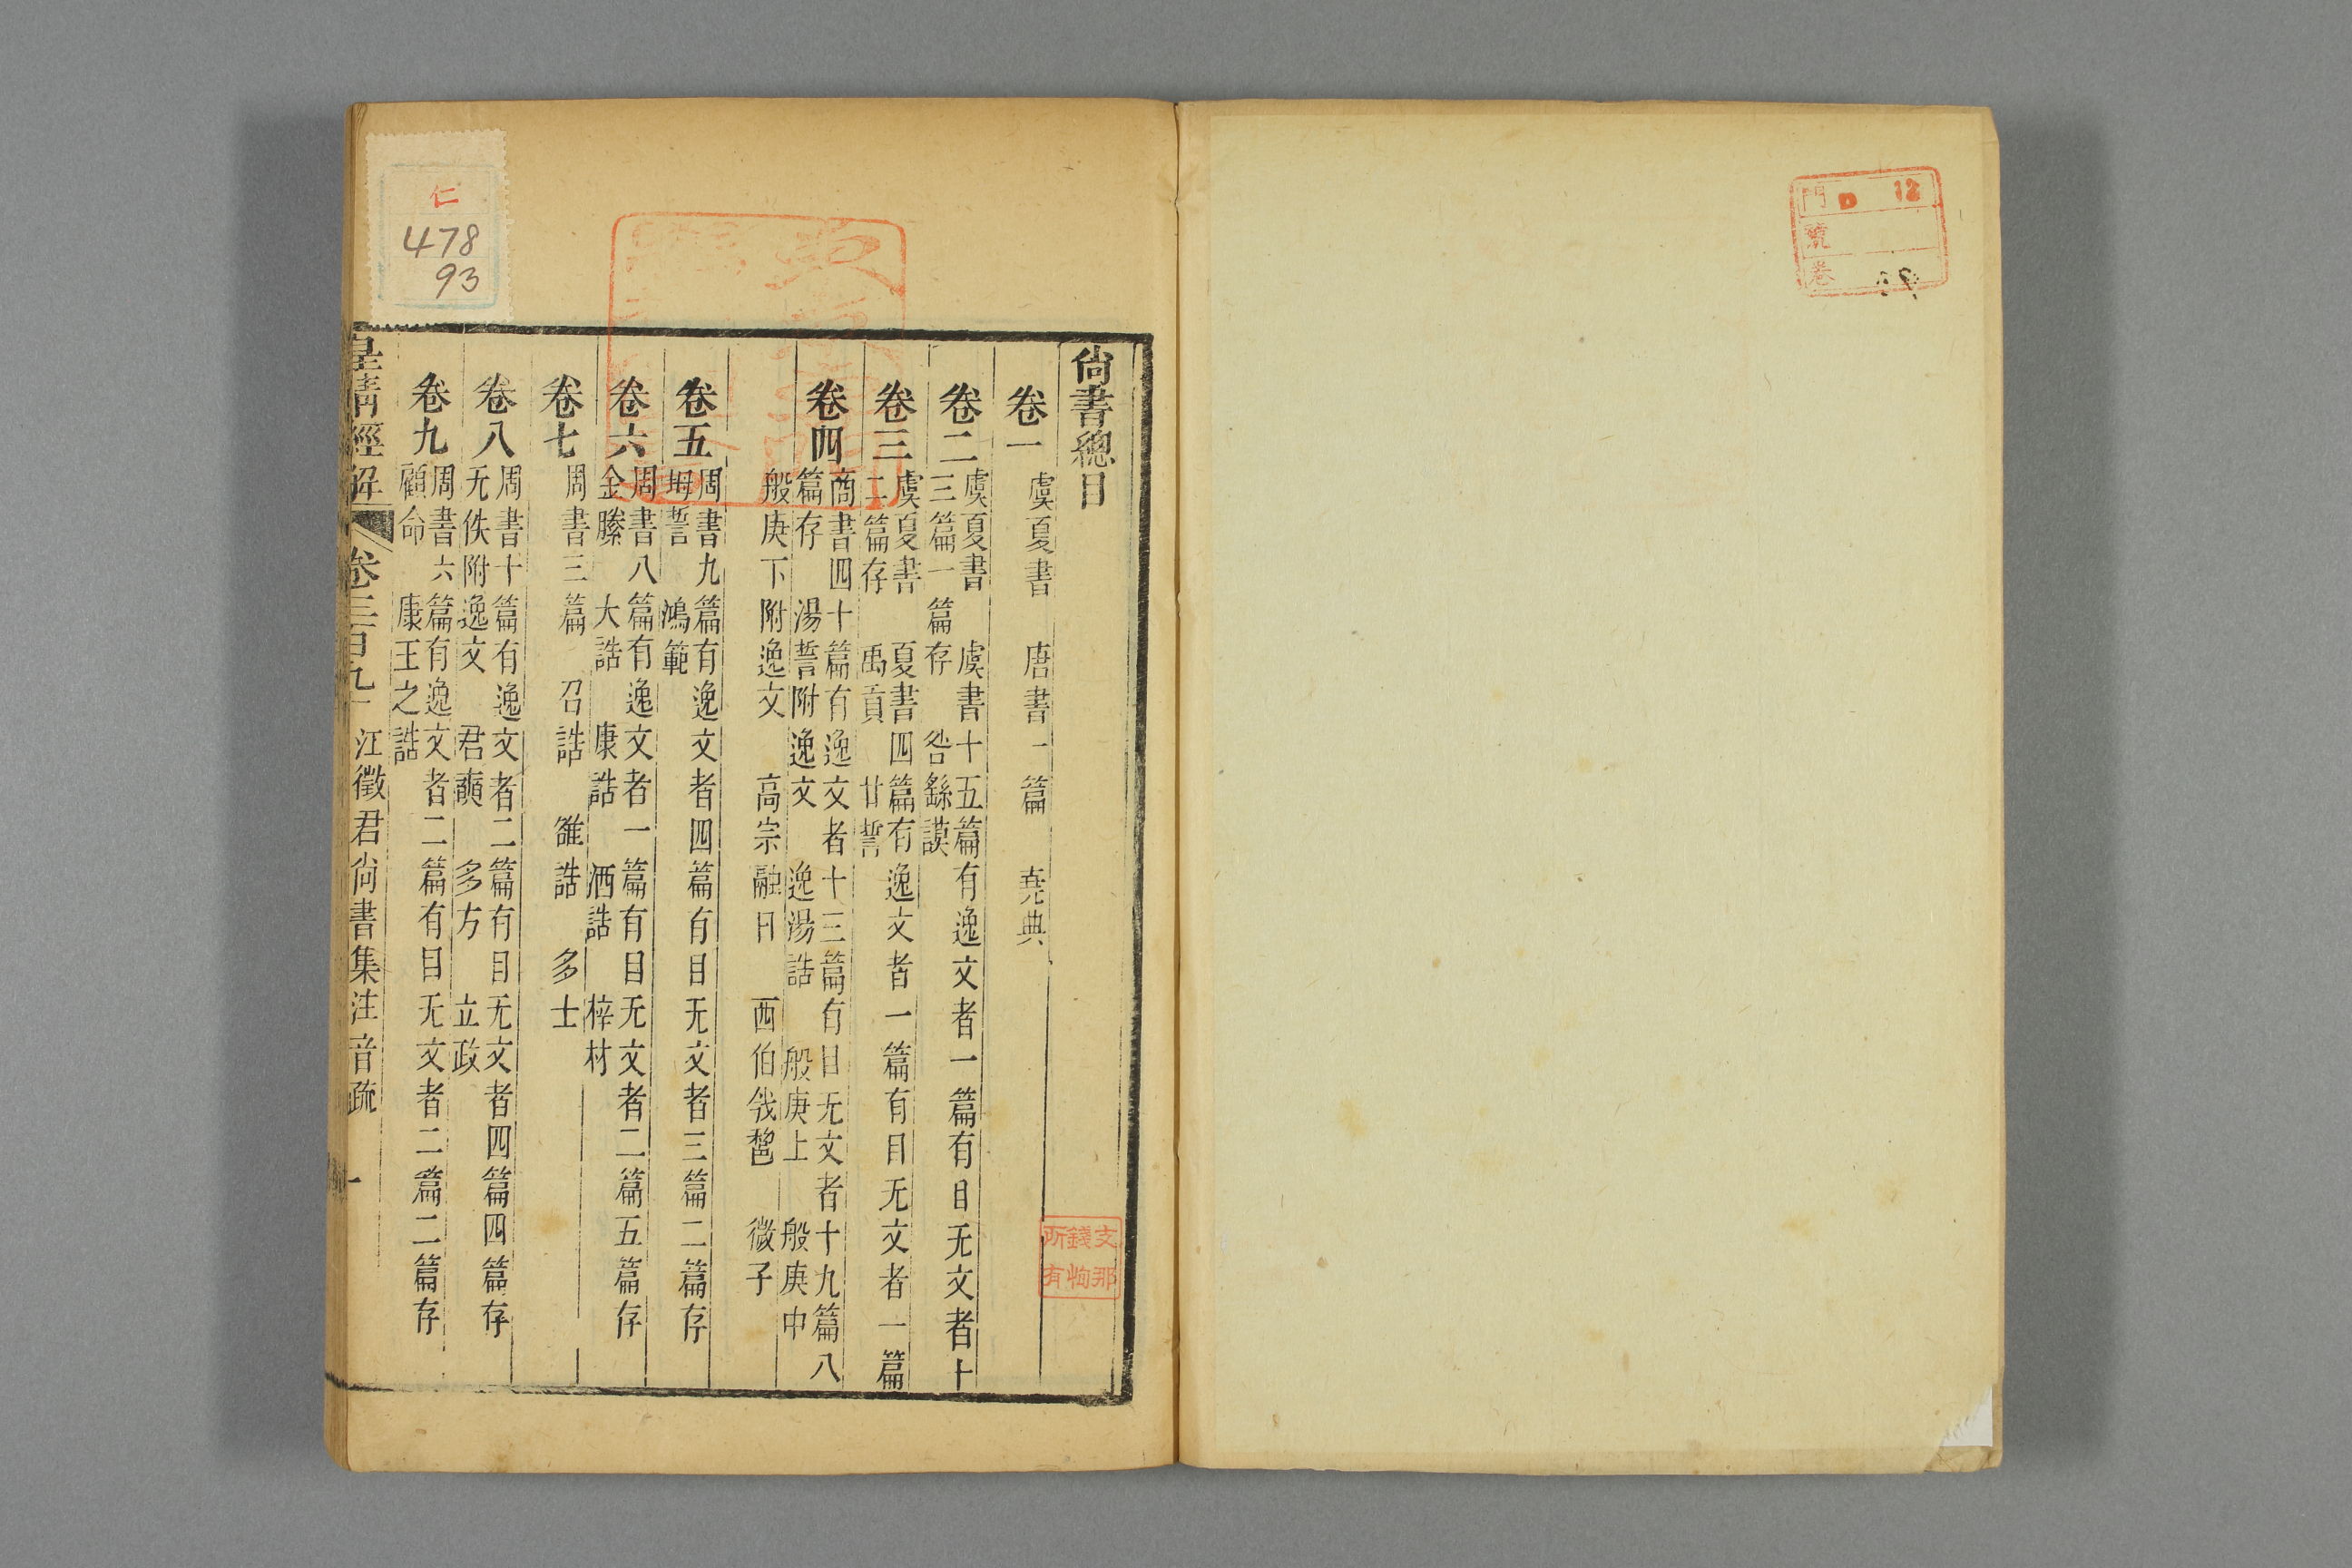 門 D 12
號
卷
尙書總目
卷一 虞夏書 唐書一篇 堯典
卷二 虞夏書 虞書十五篇有逸文者一篇有目无文者十
三篇一篇存 咎繇謨
卷三 虞夏書 夏書四篇有逸文者一篇有目无文者一篇
二篇存 禹貢 甘誓
卷四 商書四十篇有逸文者十三篇有目无文者十九篇八
篇存 湯誓附逸文 逸湯誥 般庚上 般庚中
般庚下附逸文 高宗融日 西伯㦵𨛫 微子
卷五 周書九篇有逸文者四篇有目无文者三篇二篇存
坶誓 鴻範
卷六 周書八篇有逸文者一篇有目无文者二篇五篇存
金縢 大誥 康誥 酒誥 梓材
卷七 周書三篇 召誥 雒誥 多士
卷八 周書十篇有逸文者二篇有目无文者四篇四篇存
无佚附逸文 君奭 多方 立政
卷九 周書六篇有逸文者二篇有目无文者二篇二篇存
顧命 康王之誥
皇淸經解 卷三百九十 江徵君尙書集注音疏 一
支那
錢恂
所有
仁
478
93